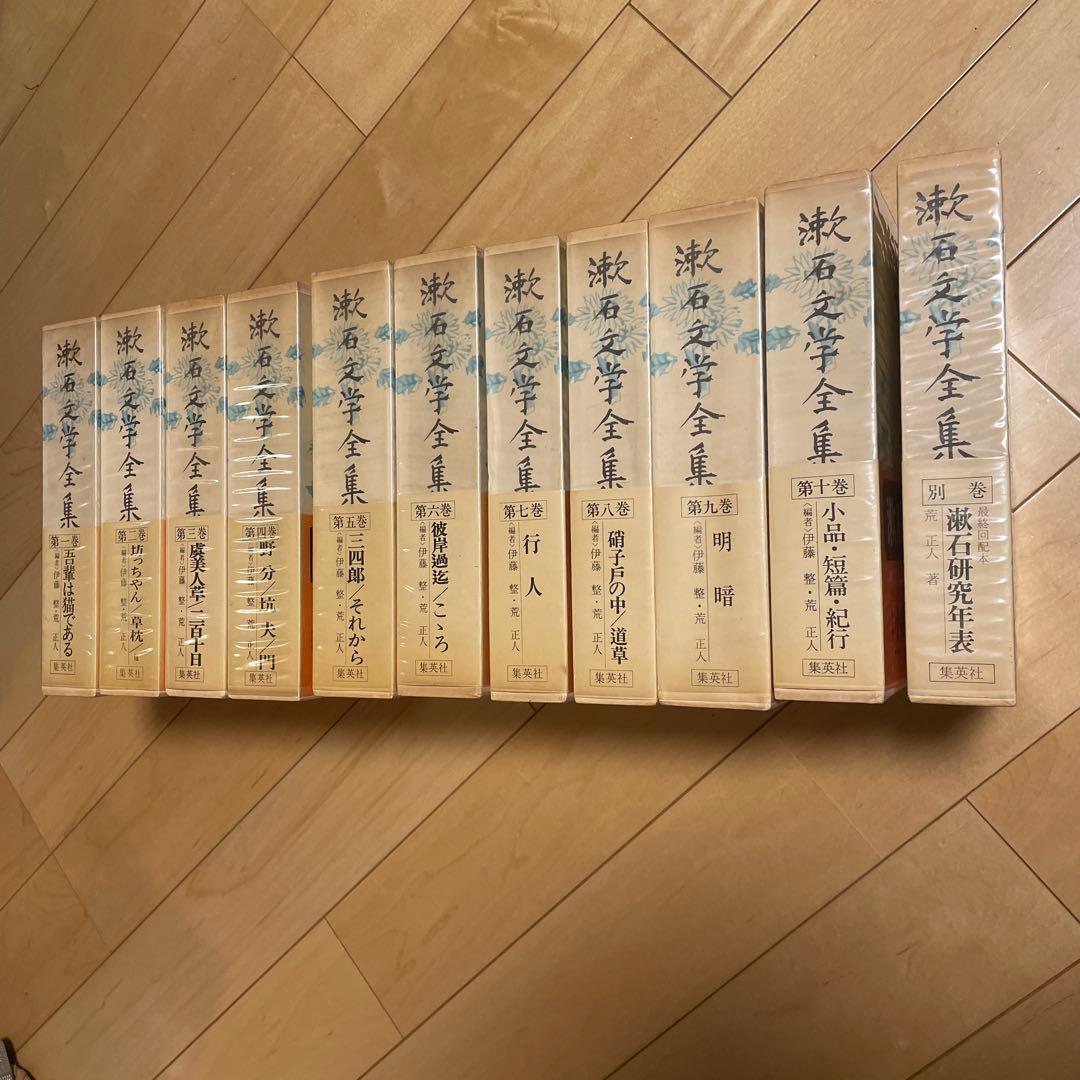 漱石文学全集
第一巻
吾輩は猫である
〈編者〉伊藤 整・荒 正人
集英社
漱石文学全集
第二巻
坊っちゃん/草枕/他
〈編者〉伊藤 整・荒 正人
集英社
漱石文学全集
第三巻
虞美人草/二百十日
〈編者〉伊藤 整・荒 正人
集英社
漱石文学全集
第四巻
野 分/坑 夫/門
〈編者〉伊藤 整・荒 正人
集英社
漱石文学全集
第五巻
三四郎/それから
〈編者〉伊藤 整・荒 正人
集英社
漱石文学全集
第六巻
彼岸過迄/こゝろ
〈編者〉伊藤 整・荒 正人
集英社
漱石文学全集
第七巻
行 人
〈編者〉伊藤 整・荒 正人
集英社
漱石文学全集
第八巻
硝子戸の中/道草
〈編者〉伊藤 整・荒 正人
集英社
漱石文学全集
第九巻
明 暗
〈編者〉伊藤 整・荒 正人
集英社
漱石文学全集
第十巻
小品・短篇・紀行
〈編者〉伊藤 整・荒 正人
集英社
漱石文学全集
別 巻
最終回配本
漱石研究年表
荒 正人 著
集英社